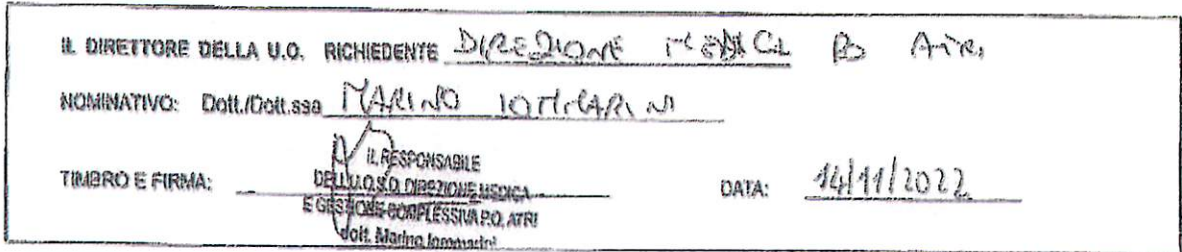 IL DIRETTORE DELLA U.O. RICHIEDENTE DIREZIONE MEDICA PO ATRI
NOMINATIVO: Dott./Dott.ssa MARINO IOMMARINI
TIMBRO E FIRMA:
IL RESPONSABILE
DELL'U.O.S.D. DIREZIONE MEDICA
E GESTIONE COMPLESSIVA P.O. ATRI
dott. Marino Iommarini
DATA: 14/11/2022